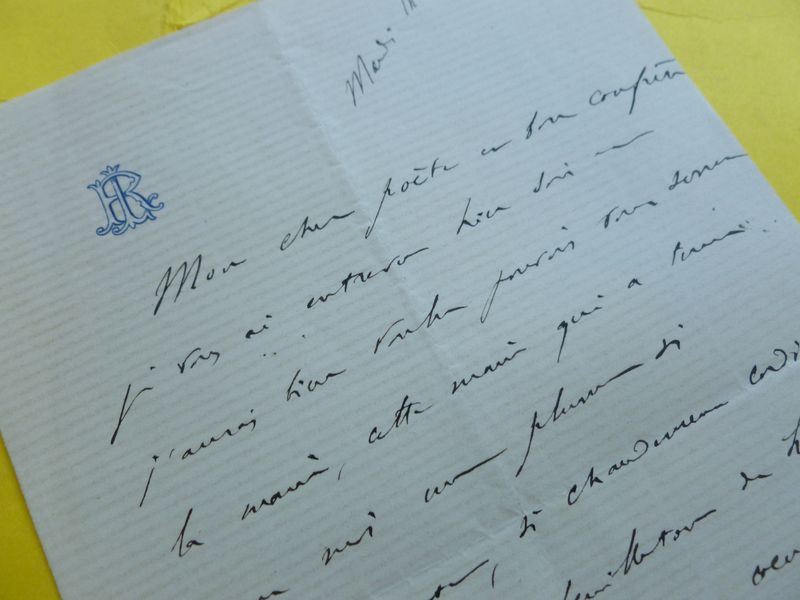 Mardi
R
Mon cher poète et bon confrère
Je vous ai entrevu hier soir —
j'aurais bien voulu pouvoir vous serrer
la main, cette main qui a tenu
mis une plume si
si chaudement cordi
feuilleton de